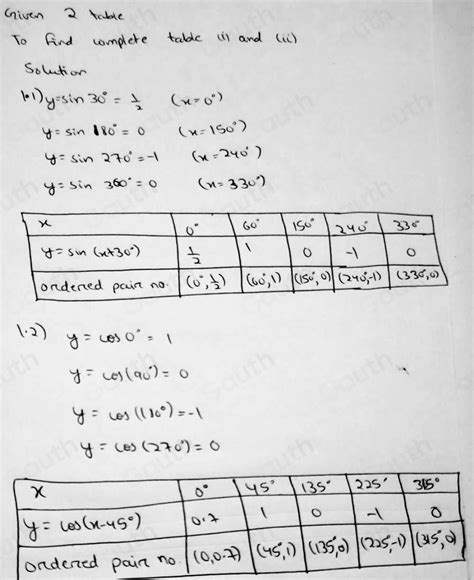 Given 2 table
To find complete table (i) and (ii)
Solution
1.1) y=sin 30° = 1/2 (x=0°)
y = sin 180° = 0 (x=150°)
y = sin 270° = -1 (x=240°)
y = sin 360° = 0 (x=330°)
x 0° 60° 150° 240° 330°
y = sin (x+30°) 1/2 1 0 -1 0
ordered pair no. (0°,1/2) (60°,1) (150°,0) (240°,-1) (330°,0)
1.2) y = cos 0° = 1
y = cos(90°) = 0
y = cos(180°) = -1
y = cos(270°) = 0
x 0° 45° 135° 225° 315°
y = cos(x-45°) 0.7 1 0 -1 0
ordered pair no. (0,0.7) (45°,1) (135°,0) (225°,-1) (315°,0)